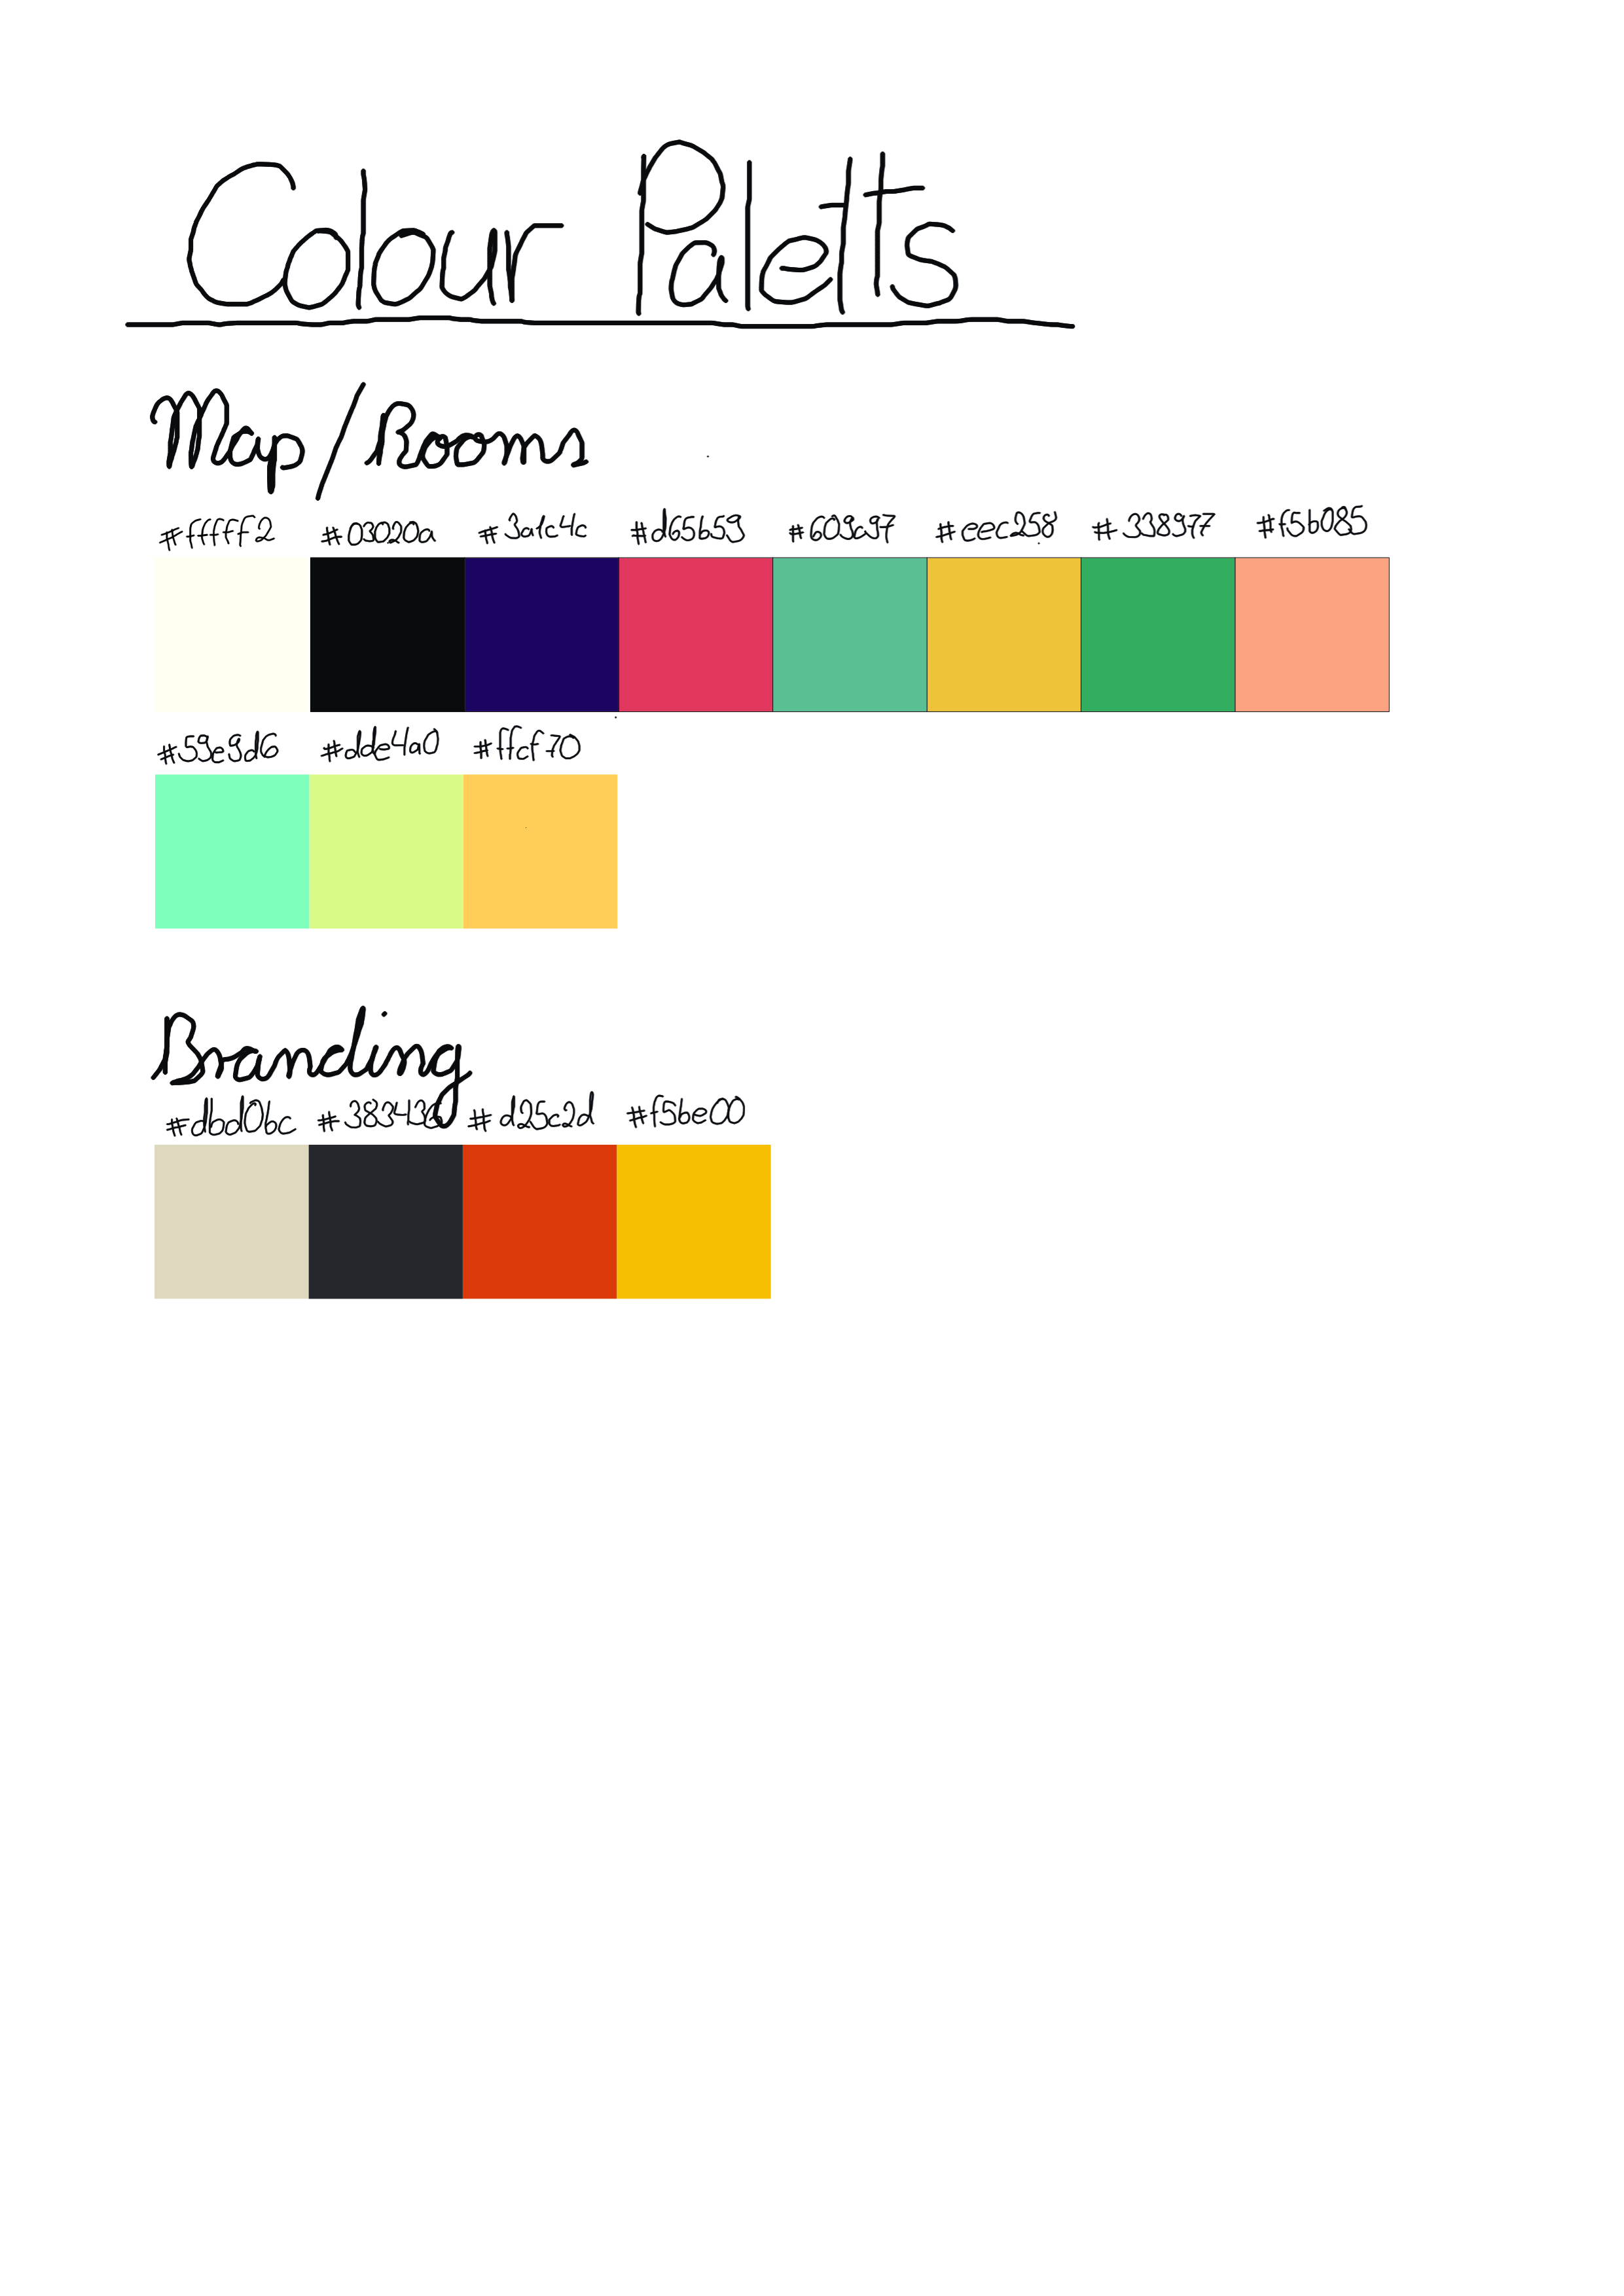 Colour Paletts
Map/Rooms
#fffff2 #03020a #3a1c4c #d65b59 #609a97 #eec258 #338977 #f5b085
#59e9d6 #dde4a0 #ffcf70
Branding
#dbd0bc #d25c2d #f5be00